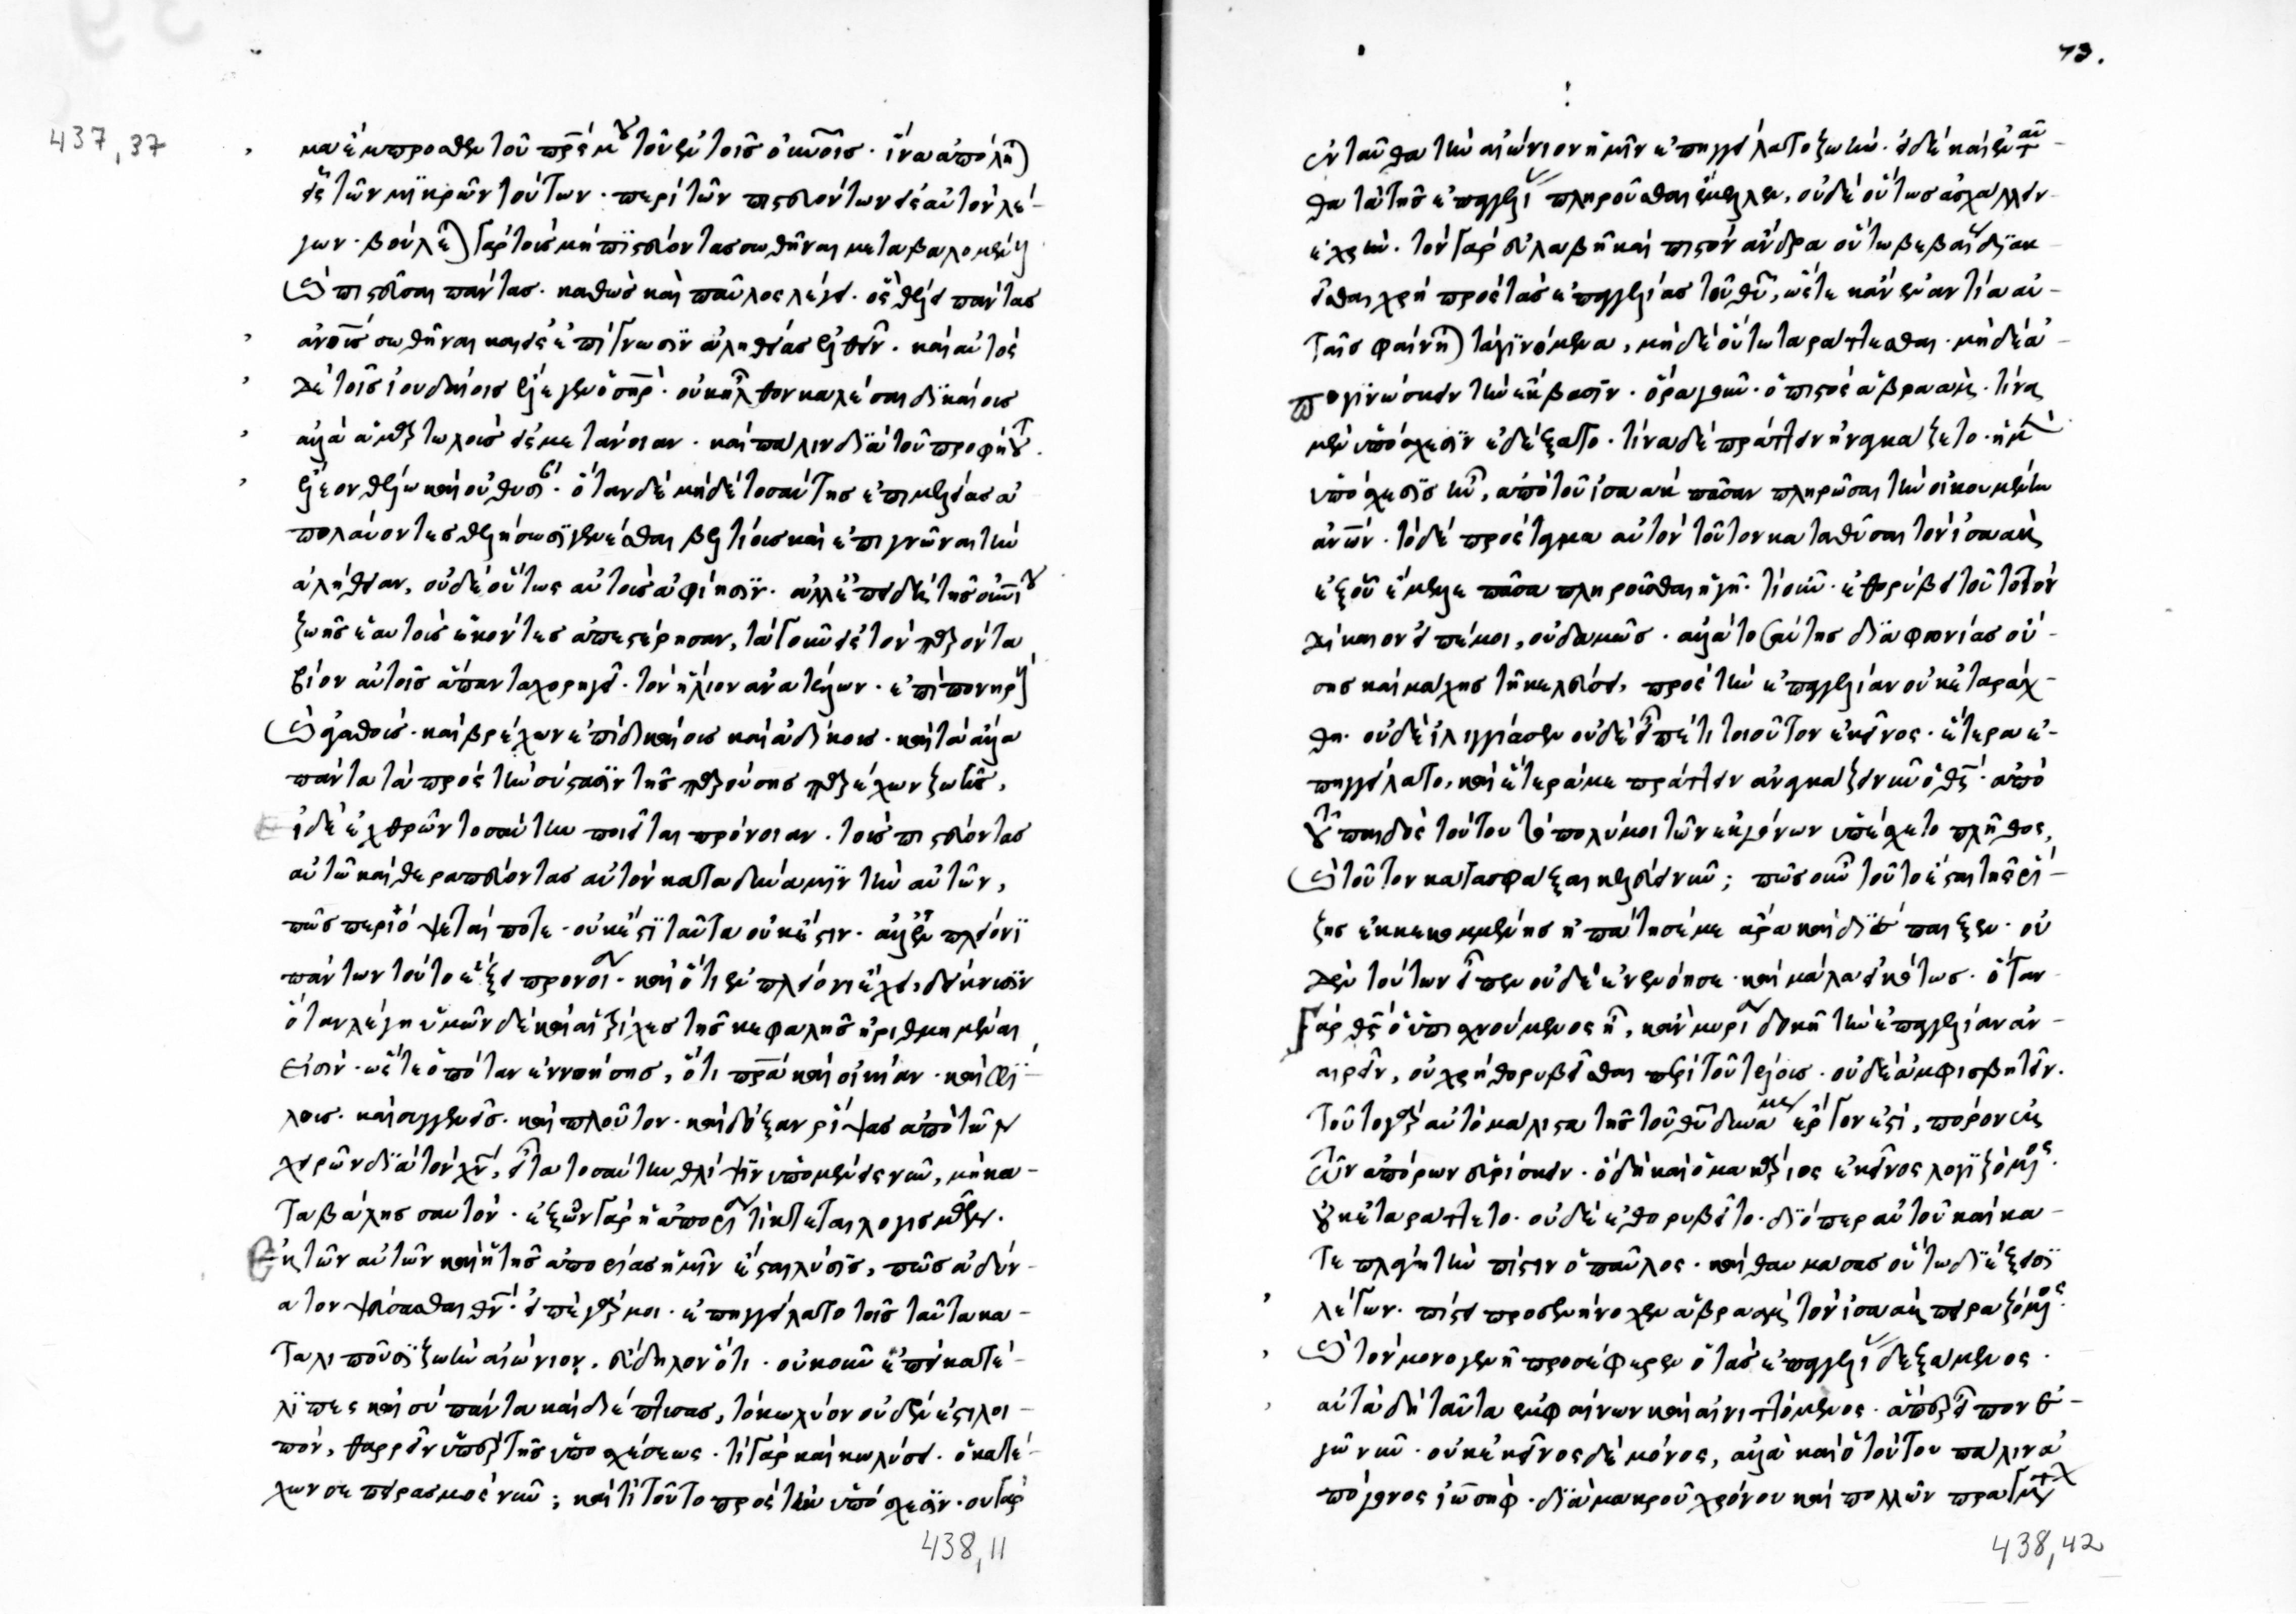 437,37
μα ἔμπροσθεν τοῦ πρς μου τοῦ ἐν τοῖς οὐνοῖς · ἵνα ἀπόλητ
εἷς τῶν μικρῶν τούτων · περὶ τῶν πιστευόντων εἰς αὐτὸν λέ-
γων · βούλεται γὰρ τοὺς μὴ πιστεύοντας σωθῆναι μεταβαλομένους
καὶ πιστεῦσαι πάντας · καθὼς καὶ παῦλος λέγει · ὃς θέλει πάντας
ἀνους σωθῆναι καὶ εἰς ἐπίγνωσιν ἀληθείας ἐλθεῖν · καὶ αὐτὸς
δὲ τοῖς ἰουδαίοις ἔλεγεν ὁ σηρ · οὐκ ἦλθον καλέσαι δικαίους
ἀλλὰ ἁμαρτωλοὺς εἰς μετάνοιαν · καὶ πάλιν διὰ τοῦ προφήτου ·
ἔλεον θέλω καὶ οὐ θυσίαν · ὅταν δὲ μηδὲ τοσαύτης ἐπιμελείας ἀ
πολαύοντες θελήσωσι γενέσθαι βελτίους καὶ ἐπιγνῶναι τὴν
ἀλήθειαν, οὐδὲ οὕτως αὐτοὺς ἀφίησιν · ἀλλ' ἐπειδὴ τῆς οὐνίου
ζωῆς ἑαυτοὺς ἑκόντες ἀπεστέρησαν, τὰ γοῦν εἰς τὸν παρόντα
βίον αὐτοῖς ἅπαντα χορηγεῖ · τὸν ἥλιον ἀνατέλλων · ἐπὶ πονηροὺς
καὶ ἀγαθούς · καὶ βρέχων ἐπὶ δικαίους καὶ ἀδίκους · καὶ τὰ ἄλλα
πάντα τὰ πρὸς τὴν σύστασιν τῆς παρούσης παρέχων ζωῆς,
εἰ δὲ ἐχθρῶν τοσαύτην ποιεῖται πρόνοιαν · τοὺς πιστεύοντας
αὐτῶ καὶ θεραπεύοντας αὐτὸν κατὰ δύναμιν τὴν αὐτῶν,
πῶς περιόψεταί ποτε · οὐκ ἔστι ταῦτα οὐκ ἔστιν · ἀλλ' ἐν πλείονι
πάντων τούτο ἕξει προνοία · καὶ ὅτι ἐν πλείονι ἔχει, δείκνυσιν
ὅταν λέγη ὑμῶν δὲ καὶ αἱ τρίχες τῆς κεφαλῆς ἠριθμημέναι
εἰσίν · ὥστε ὁπόταν ἐννοήσης, ὅτι πρα καὶ οἰκίαν · καὶ φί-
λους · καὶ συγγενεῖς · καὶ πλοῦτον · καὶ δόξαν ῥίψας ἀπὸ τῶν
χειρῶν διὰ τὸν χν, εἶτα τοσαύτην θλίψιν ὑπομένεις νῦν, μὴ κα-
ταβάλης σαυτόν · ἐξ ὧν γὰρ ἡ ἀπορία τίκτεται λογισμῶν ·
ἐκ τῶν αὐτῶν καὶ ἡ τῆς ἀπορίας ἡμῖν ἔσται λύσις, πῶς ἀδύν-
ατον ψεύσασθαι θν · εἰπὲ γάρ μοι · ἐπηγγείλατο τοῖς ταῦτα κα-
ταλιποῦσι ζωὴν αἰώνιον, εὔδηλον ὅτι · οὐκοῦν ἐπεὶ κατέ-
λιπες καὶ σὺ πάντα καὶ διέπτυσας, τὸ κωλύον οὐδὲν ἔστι λοι-
πόν, θαρρεῖν ὑπὲρ τῆς ὑποσχέσεως · τί γὰρ καὶ κωλύσει · ὁ κατέ-
χων σε πειρασμὸς νῦν ; καὶ τί τοῦτο πρὸς τὴν ὑπόσχεσιν · οὐ γὰρ
438,11
ἐνταῦθα τὴν αἰώνιον ἡμῖν ἐπηγγείλατο ζωήν · εἰ δὲ καὶ ἐνταῦ-
θα τὰ τῆς ἐπαγγελίας πληροῦσθαι ἔμελλεν, οὐδὲ οὕτως ἀσχάλλειν
ἐχρῆν · τὸν γὰρ εὐλαβῆ καὶ πιστὸν ἄνδρα οὕτω βεβαίως διακ
εῖσθαι χρὴ πρὸς τὰς ἐπαγγελίας τοῦ θυ, ὥστε κἂν ἐναντία αὐ-
ταῖς φαίνηται τὰ γινόμενα, μηδὲ οὕτω ταράττεσθαι · μηδὲ ἀ-
πογινώσκειν τὴν ἔκβασιν · ὅρα γοῦν · ὁ πιστὸς ἀβραὰμ · τίνα
μὲν ὑπόσχεσιν ἐδέξατο · τίνα δὲ πράττειν ἠναγκάζετο · ἡ μὲν
ὑπόσχεσις ἦν, ἀπὸ τοῦ ἰσαὰκ πᾶσαν πληρῶσαι τὴν οἰκουμένην
ἀνων · τὸ δὲ πρόσταγμα αὐτὸν τοῦτον καταθῦσαι τὸν ἰσαὰκ
ἐξ οὗ ἔμελλε πᾶσα πληροῦσθαι ἡ γῆ · τί οὖν · ἐθορύβει τοῦτο τὸν
δίκαιον εἰπέ μοι, οὐδαμῶς · ἀλλὰ τοσαύτης διαφωνίας οὔ-
σης καὶ μάχης τῆ κελεύσει, πρὸς τὴν ἐπαγγελίαν οὐκ ἐταράχ-
θη · οὐδὲ ἰλιγγίασεν οὐδὲ εἶπέ τι τοιοῦτον ἐκεῖνος · ἕτερα ἐ-
πηγγείλατο, καὶ ἕτερά με πράττειν ἀναγκάζει νῦν ὁ θς · ἀπὸ
τοῦ παιδὸς τούτου τὸ πολύ μοι τῶν ἐκγόνων ὑπέσχετο πλῆθος,
καὶ τοῦτον κατασφάξαι κελεύει νῦν ; πῶς οὖν τοῦτο ἔσται τῆς ῥί-
ζης ἐκκεκομμένης ἠπάτησέ με ἄρα καὶ διέπαιξεν · οὐ
δὲν τούτων εἶπεν οὐδὲ ἐνενόησε · καὶ μάλα εἰκότως · ὅταν
γὰρ θς ὁ ὑπισχνούμενος ἦ, κἂν μυρία δοκῆ τὴν ἐπαγγελίαν ἀν-
αιρεῖν, οὐ χρὴ θορυβεῖσθαι περὶ τοῦ τέλους · οὐδὲ ἀμφισβητεῖν ·
τοῦτο γὰρ αὐτὸ μάλιστα τῆς τοῦ θυ δυνάμεως ἔργον ἐστί, πόρον ἐκ
τῶν ἀπόρων εὑρίσκειν · ὃ δὴ καὶ ὁ μακάριος ἐκεῖνος λογιζόμενος ·
οὐκ ἐταράττετο · οὐδὲ ἐθορυβεῖτο · διόπερ αὐτοῦ καὶ κα-
τεπλάγη τὴν πίστιν ὁ παῦλος · καὶ θαυμάσας οὕτω διέξεισι
λέγων · πίστει προσενήνοχεν ἀβραὰμ τὸν ἰσαὰκ πειραζόμενος ·
καὶ τὸν μονογενῆ προσέφερεν ὁ τὰς ἐπαγγελίας δεξάμενος ·
αὐτὰ δὴ ταῦτα ἐμφαίνων καὶ αἰνιττόμενος · ἅπερ εἶπον ἐ-
γὼ νῦν · οὐκ ἐκεῖνος δὲ μόνος, ἀλλὰ καὶ ὁ τούτου πάλιν ἀ
πόγονος ἰωσὴφ · διὰ μακροῦ χρόνου καὶ πολλῶν πραγμάτων
438,42